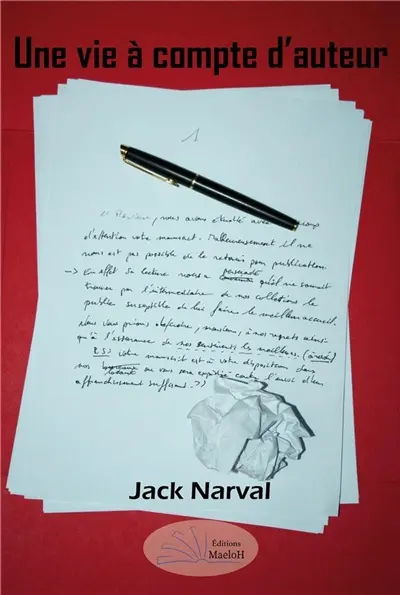 Une vie à compte d'auteur
1
Monsieur, nous avons étudié avec beaucoup
d'attention votre manuscrit. Malheureusement il ne
nous est pas possible de le retenir pour publication.
→ En effet sa lecture nous a persuadé qu'il ne saurait
trouver par l'intermédiaire de nos collections le
public susceptible de lui faire le meilleur accueil.
Nous vous prions d'agréer, monsieur, à nos regrets ainsi
qu'à l'assurance de nos sentiments les meilleurs.
PS: votre manuscrit est à votre disposition dans
nos ou vous sera expédié contre l'envoi d'un
affranchissement suffisant.
Jack Narval
Éditions
MaeloH